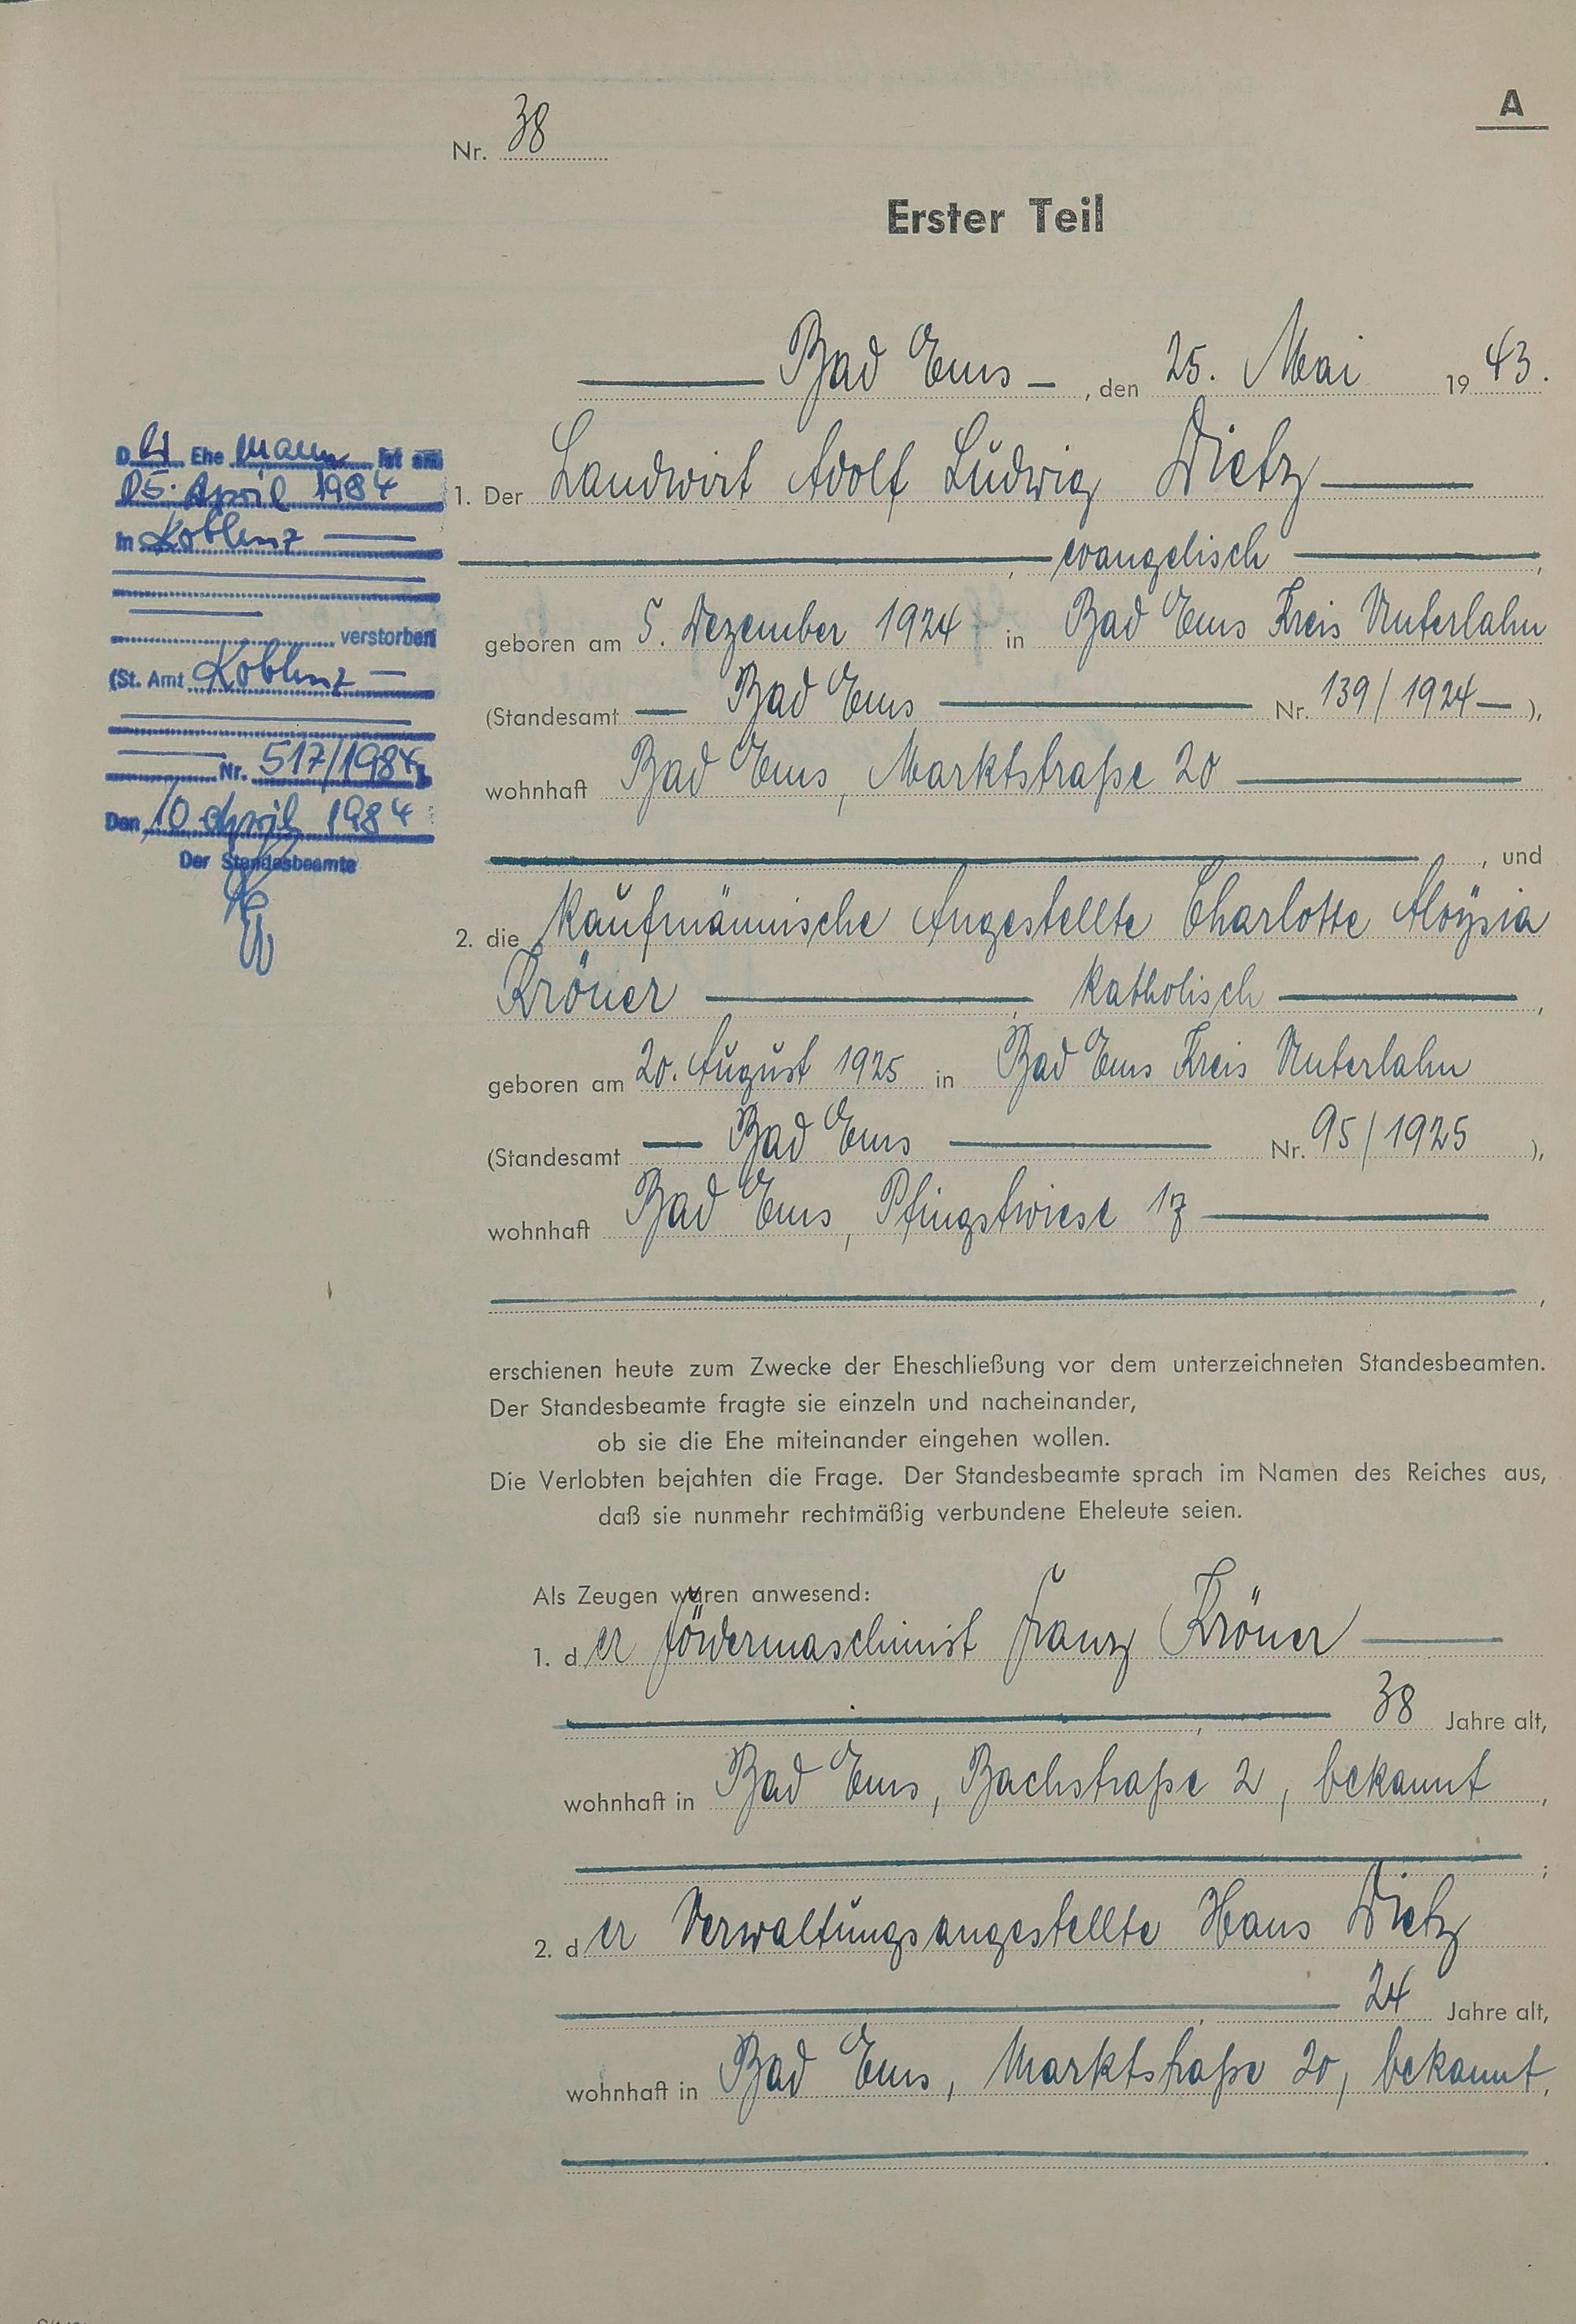 A
Nr. 38
Erster Teil
Bad Ems, den 25. Mai 1943.
1. Der Landwirt Adolf Ludwig Dietz
, evangelisch ,
geboren am 5. Dezember 1924 in Bad Ems Kreis Unterlahn
(Standesamt Bad Ems Nr. 139/1924),
wohnhaft Bad Ems, Marktstraße 20
, und
2. die kaufmännische Angestellte Charlotte Aloysia
Kröner , katholisch ,
geboren am 20. August 1925 in Bad Ems Kreis Unterlahn
(Standesamt Bad Ems Nr. 95/1925 ),
wohnhaft Bad Ems, Pfingstwiese 17
,
erschienen heute zum Zwecke der Eheschließung vor dem unterzeichneten Standesbeamten.
Der Standesbeamte fragte sie einzeln und nacheinander,
ob sie die Ehe miteinander eingehen wollen.
Die Verlobten bejahten die Frage. Der Standesbeamte sprach im Namen des Reiches aus,
daß sie nunmehr rechtmäßig verbundene Eheleute seien.
Als Zeugen waren anwesend:
1. der Fördermaschinist Franz Kröner
, 38 Jahre alt,
wohnhaft in Bad Ems, Bachstraße 2, bekannt ,
;
2. der Verwaltungsangestellte Hans Dietz
, 24 Jahre alt,
wohnhaft in Bad Ems, Marktstraße 20, bekannt,
.
Der Ehemann ist am
05. April 1984
in Koblenz
verstorben
(St. Amt Koblenz
Nr. 517/1984)
Den 10 April 1984
Der Standesbeamte